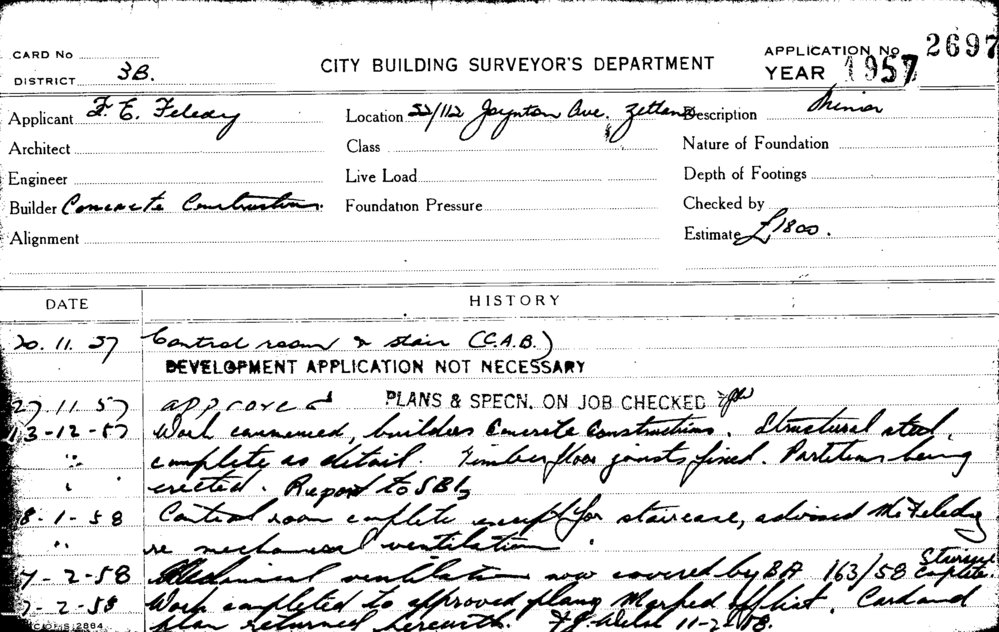 CARD No
DISTRICT 3B.
CITY BUILDING SURVEYOR'S DEPARTMENT
APPLICATION No. 2697
YEAR 1957
Applicant F. E. Feledy
Location 52/112 Joynton Ave. Zetland
Description Minor
Architect
Class
Nature of Foundation
Engineer
Live Load
Depth of Footings
Builder Concrete Constructions.
Foundation Pressure
Checked by
Alignment
Estimate £1800.
DATE
HISTORY
20.11.57 Control room & stair (C.A.B.)
DEVELOPMENT APPLICATION NOT NECESSARY
27.11.57 approved PLANS & SPECN. ON JOB CHECKED
13-12-57 Work commenced, builders Concrete Constructions. Structural steel
complete as detail. Timber floor joists fixed. Partitions being
erected. Report to SBI
8-1-58 Control room complete except for staircase, advised Mr Feledy
re mechanical ventilation.
7-2-58 Mechanical ventilation now covered by BA 163/58 Staircase complete.
7-2-58 Work completed to approved plans Marked off list. Card and
plan returned herewith. F.J. Welsh 11-2-58.